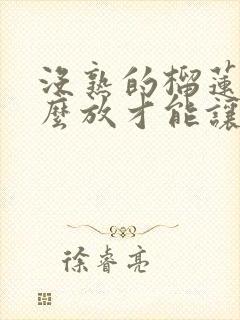 没熟的榴蓮
麼放才能讓
徐睿亮